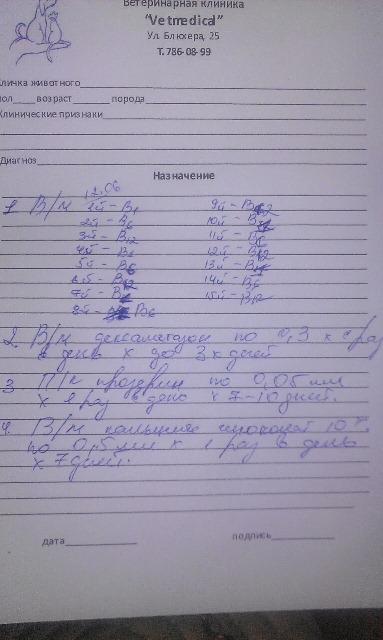 Ветеринарная клиника
“Vetmedical”
Ул. Блюхера, 25
Т.786-08-99
Кличка животного
пол____ возраст______ порода
Клинические признаки
Диагноз
Назначение
12.06
1. В/м 1й – В1 9й – В12
2й – В6 10й –
3й – В12 11й –
4й – В1 12й – В12
5й – В6 13й –
6й – В12 14й – В6
7й – 15й – В12
8й – В6
2. В/м дексаметазон по 0,3 х 1 раз
в день х до 3х дней
3. П/к прозерин по 0,05 мл
х 1 раз в день х 7-10 дней.
4. В/м кальция глюконат 10%
по 0,5 мл х 1 раз в день
х 7 дней.
дата подпись